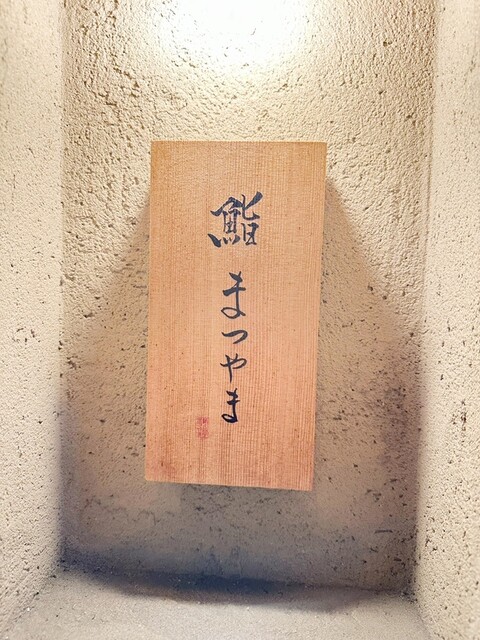 鮨
まつやま